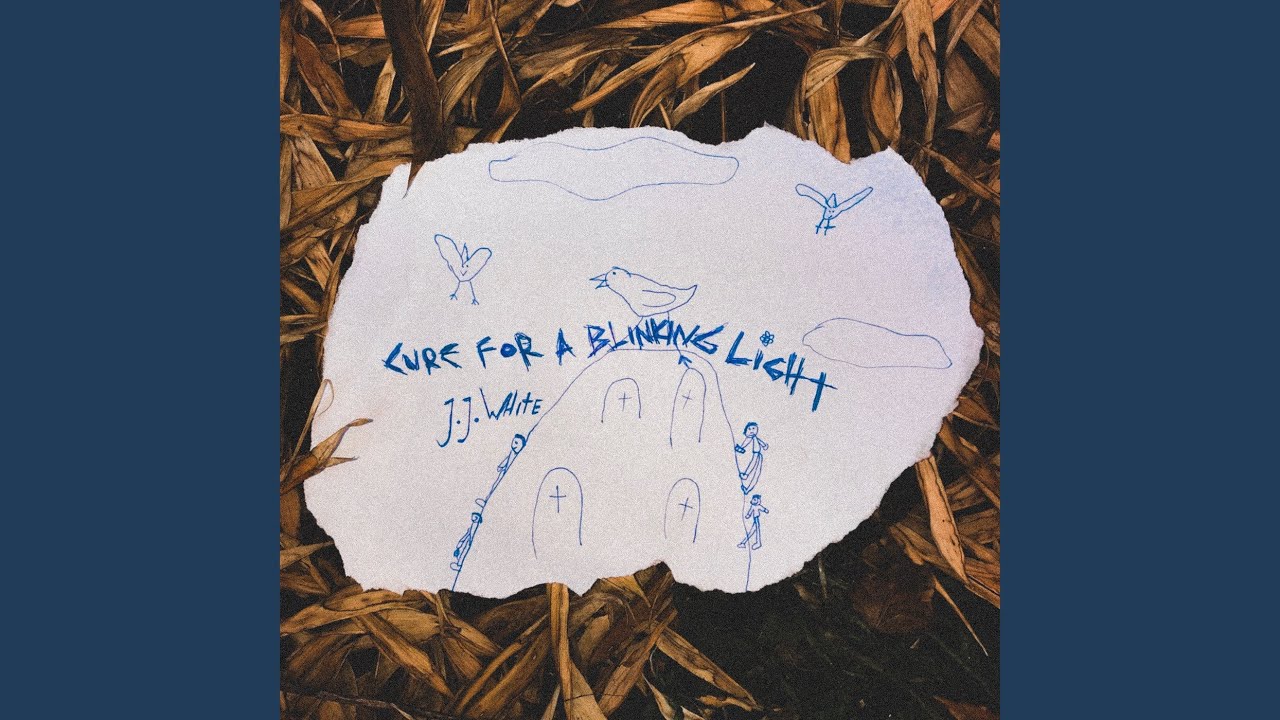 CURE FOR A BLINKING LIGHT
J.J. WHITE